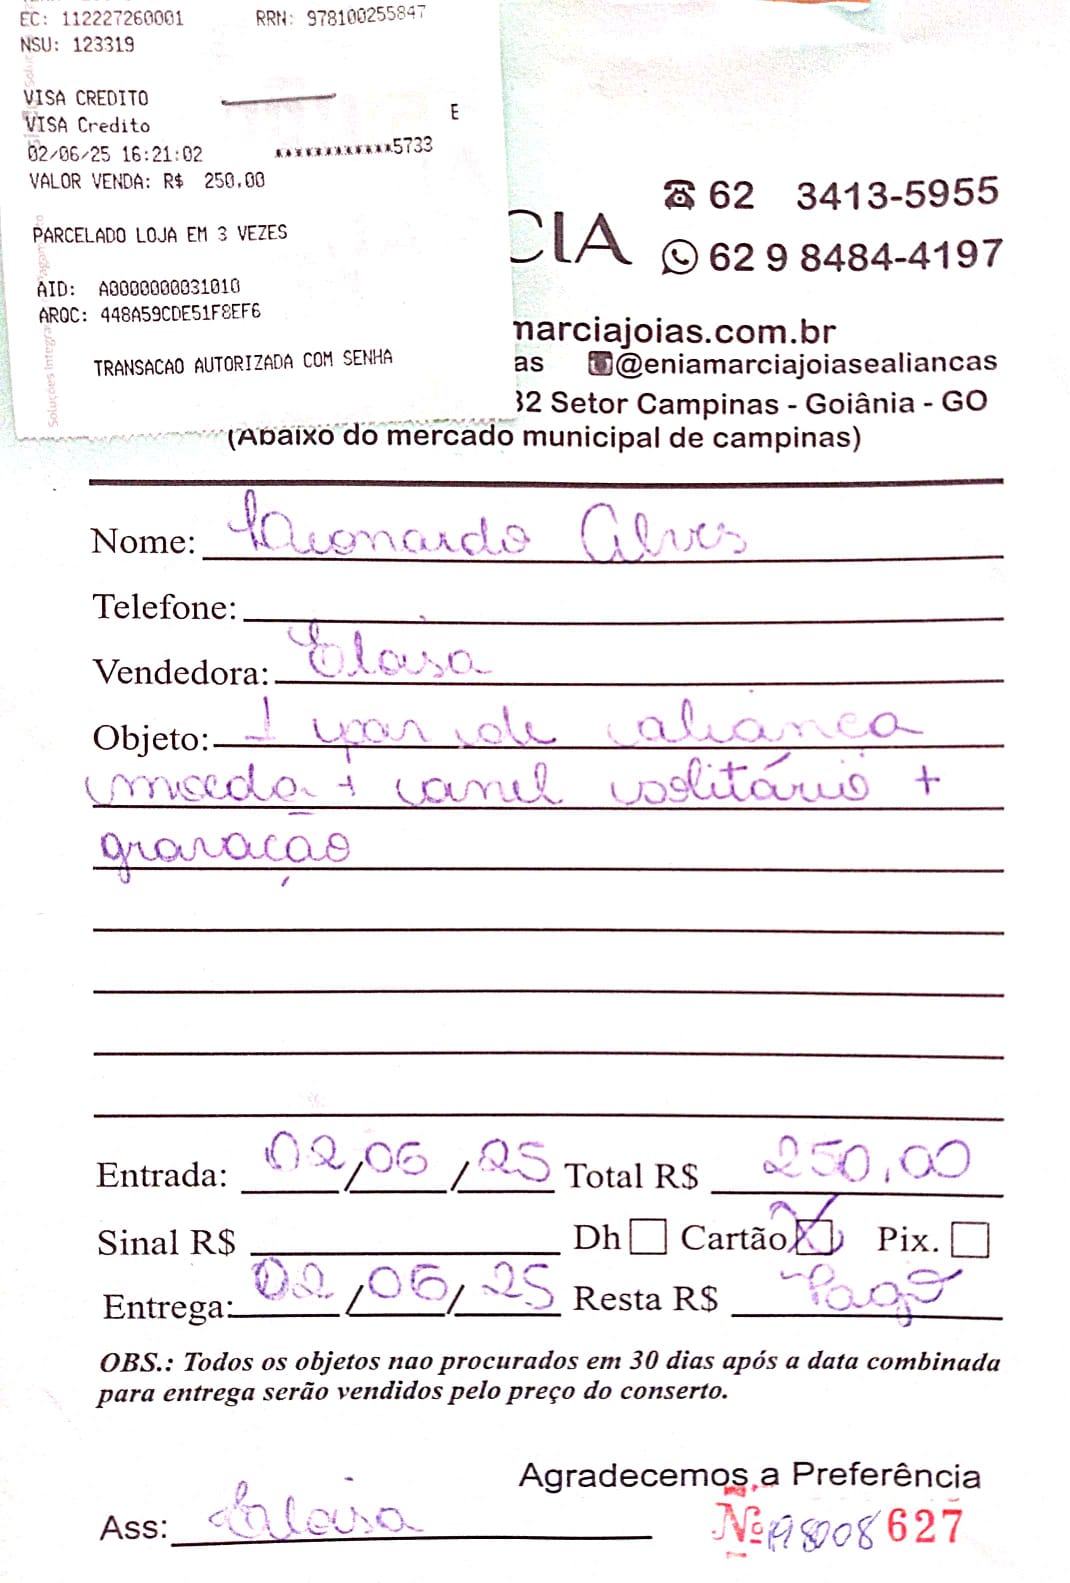 EC: 112227260001 RRN: 978100255847
NSU: 123319
VISA CREDITO
VISA Credito E
02/06/25 16:21:02 ************5733
VALOR VENDA: R$ 250,00
PARCELADO LOJA EM 3 VEZES
AID: A0000000031010
ARQC: 448A59CDE51F8EF6
TRANSACAO AUTORIZADA COM SENHA
62 3413-5955
CIA 62 9 8484-4197
marciajoias.com.br
as @eniamarciajoiasealiancas
32 Setor Campinas - Goiânia - GO
(Abaixo do mercado municipal de campinas)
Nome: Leonardo Alves
Telefone:
Vendedora: Eloisa
Objeto: 1 par de aliança
moeda + anel solitário +
gravação
Entrada: 02/06/25 Total R$ 250,00
Sinal R$ Dh Cartão X Pix.
Entrega: 02/06/25 Resta R$ Pago
OBS.: Todos os objetos nao procurados em 30 dias após a data combinada
para entrega serão vendidos pelo preço do conserto.
Agradecemos a Preferência
Ass: Eloisa Nº 198008 627